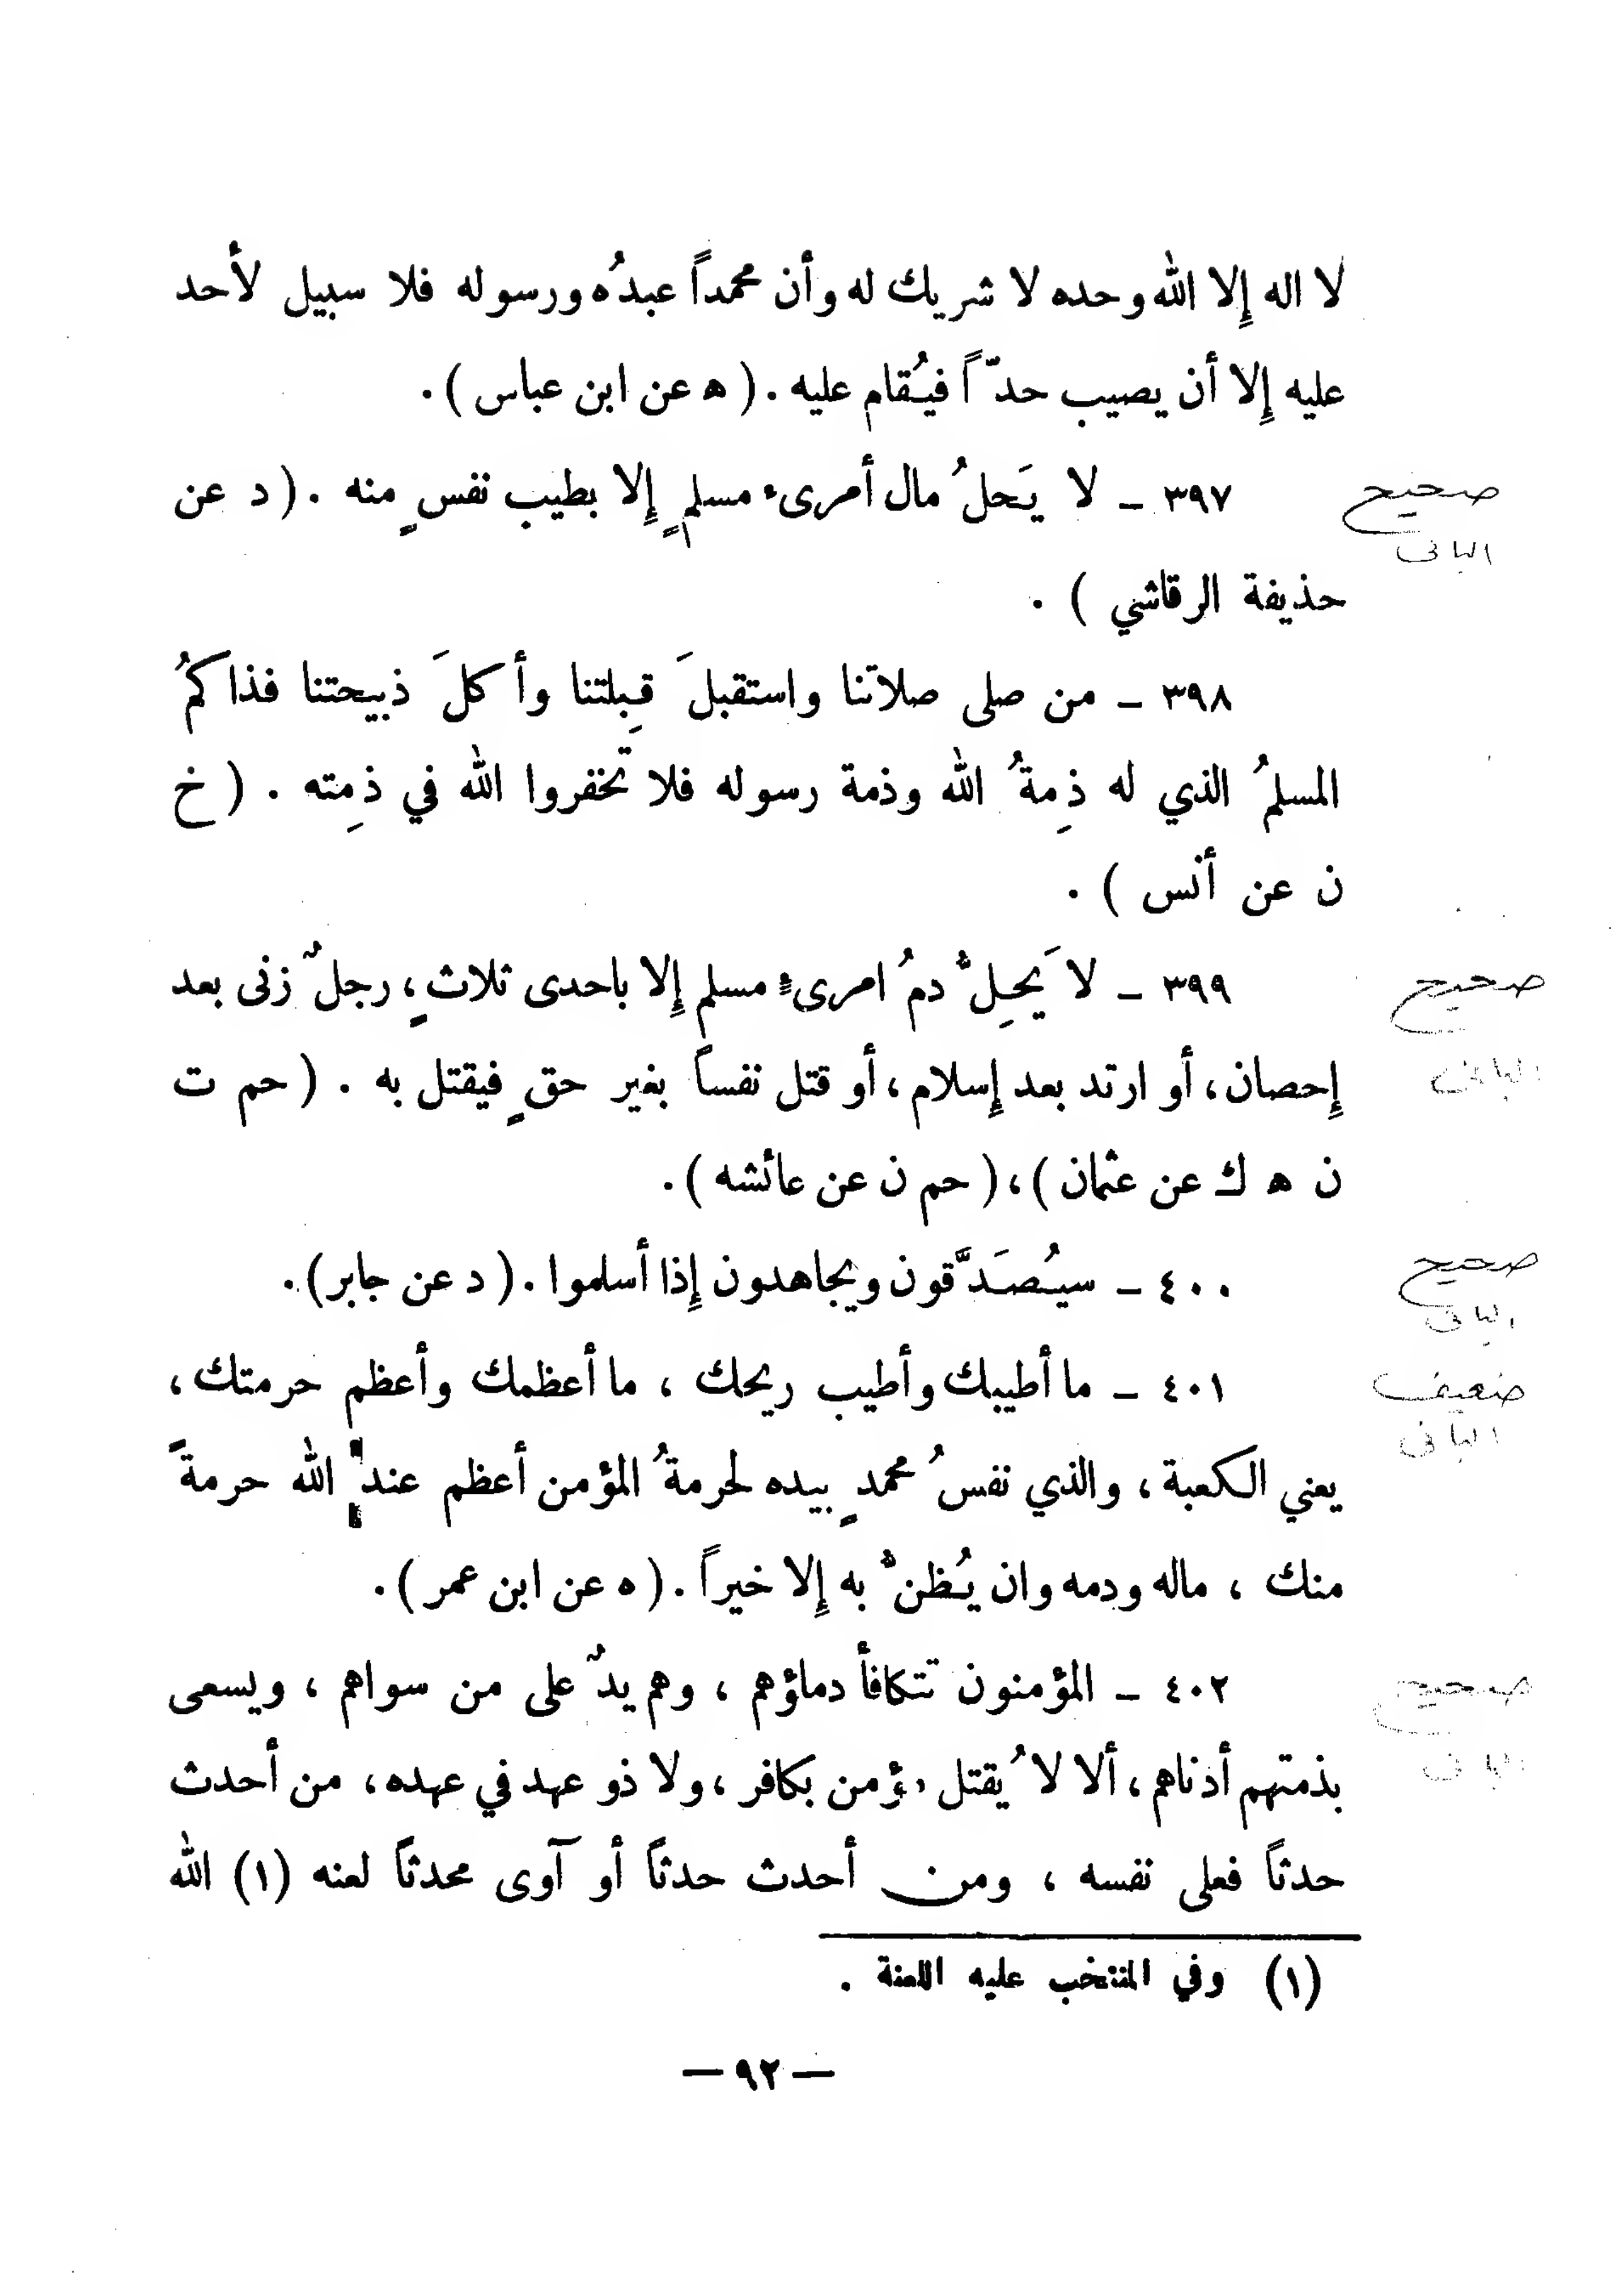 لا اله إِلا الله وحده لا شريك له وأن محمداً عبدُه ورسوله فلا سبيل لأحد
عليه إِلا أن يصيب حدّاً فيُقام عليه . ( ه عن ابن عباس ) .
٣٩٧ – لا يَحلُ مال أمرىء مسلمٍ إِلا بطيب نفسٍ منه . ( د عن
صحيح
البانى
حذيفة الرقاشي ) .
٣٩٨ – من صلى صلاتنا واستقبلَ قِبلتنا وأكلَ ذبيحتنا فذاكمُ
المسلمُ الذي له ذِمةُ الله وذمة رسوله فلا تخفروا الله في ذمِته . ( خ
ن عن أنس ) .
٣٩٩ – لا يَحِلُّ دمُ امرىءٍ مسلم إِلا باحدى ثلاثٍ، رجلٌ زنى بعد
صحيح
البانى
إِحصان، أو ارتد بعد إِسلام، أو قتل نفساً بغير حقٍ فيقتل به . ( حم ت
ن ه ك عن عثمان )، ( حم ن عن عائشه ) .
٤٠٠ – سيُصَدَّقون ويجاهدون إِذا أسلموا . ( د عن جابر ) .
صحيح
البانى
٤٠١ – ما أطيبك وأطيب ريحك ، ما أعظمك وأعظم حرمتك ،
ضعيف
البانى
يعني الكعبة ، والذي نفسُ محمدٍ بيده لحرمةُ المؤمن أعظم عند الله حرمةً
منك ، ماله ودمه وان يُظنُّ به إِلا خيراً . ( ه عن ابن عمر ) .
٤٠٢ – المؤمنون تتكافأ دماؤهم ، وهم يدٌ على من سواهم ، ويسعى
صحيح
البانى
بذمتهم أدناهم ، ألا لا يُقتل مؤمن بكافر ، ولا ذو عهد في عهده ، من أحدث
حدثاً فعلى نفسه ، ومن أحدث حدثاً أو آوى محدثاً لعنه (١) الله
(١) وفي المنتخب عليه اللعنة .
– ٩٢ –